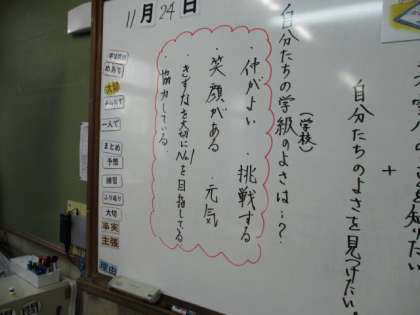 11月24日
を知りたい
+
自分たちのよさを見つけたい。
自分たちの学級のよさは…?
(学校)
・仲がよい ・挑戦する
・笑顔がある ・元気
・きずなを大切にNo.1を目指してる
・協力している。
めあて
大切
一人で
まとめ
予想
練習
ふり返り
大切
事実
主張
理由